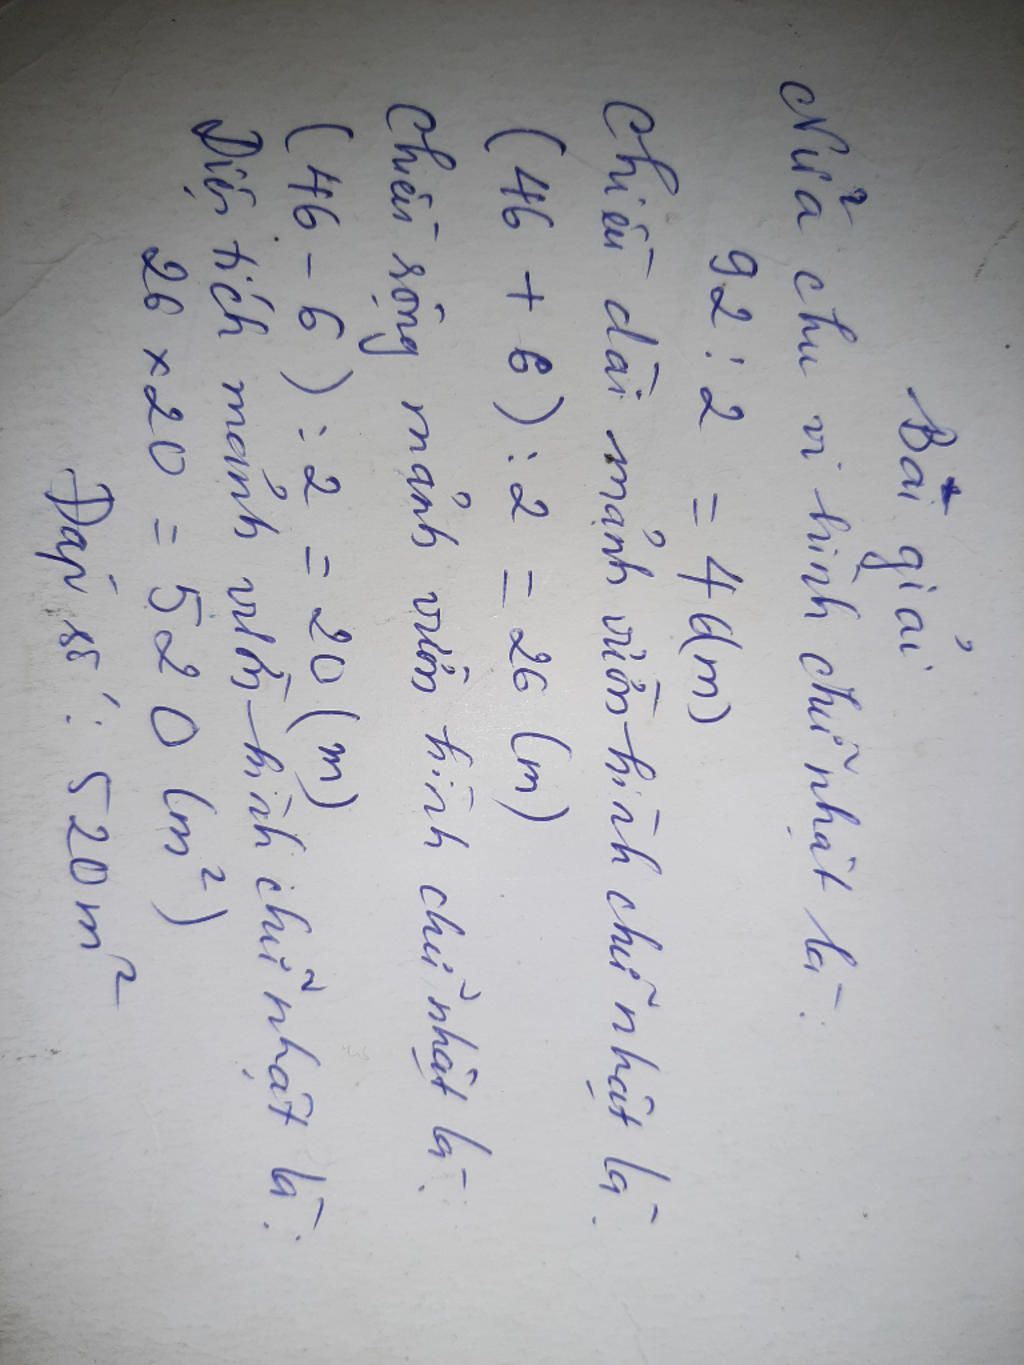 Bài giải
Nửa chu vi hình chữ nhật là:
92 : 2 = 46(m)
Chiều dài mảnh vườn hình chữ nhật là:
(46 + 6) : 2 = 26 (m)
Chiều rộng mảnh vườn hình chữ nhật là:
(46 - 6) : 2 = 20 (m)
Diện tích mảnh vườn hình chữ nhật là:
26 × 20 = 520 (m²)
Đáp số: 520 m²